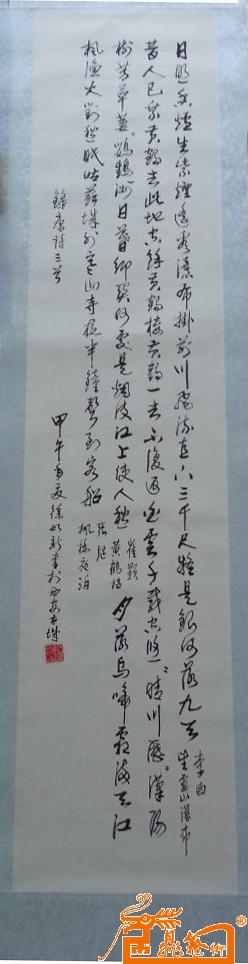 日照香炉生紫烟遥看瀑布挂前川飞流直下三千尺疑是银河落九天 李白 望庐山瀑布
昔人已乘黄鹤去此地空余黄鹤楼黄鹤一去不复返白云千载空悠悠晴川历历汉阳
树芳草萋萋鹦鹉洲日暮乡关何处是烟波江上使人愁 崔颢 黄鹤楼 月落乌啼霜满天江
枫渔火对愁眠姑苏城外寒山寺夜半钟声到客船 张继 枫桥夜泊
录唐诗三首
甲午 徐 书于西安古城